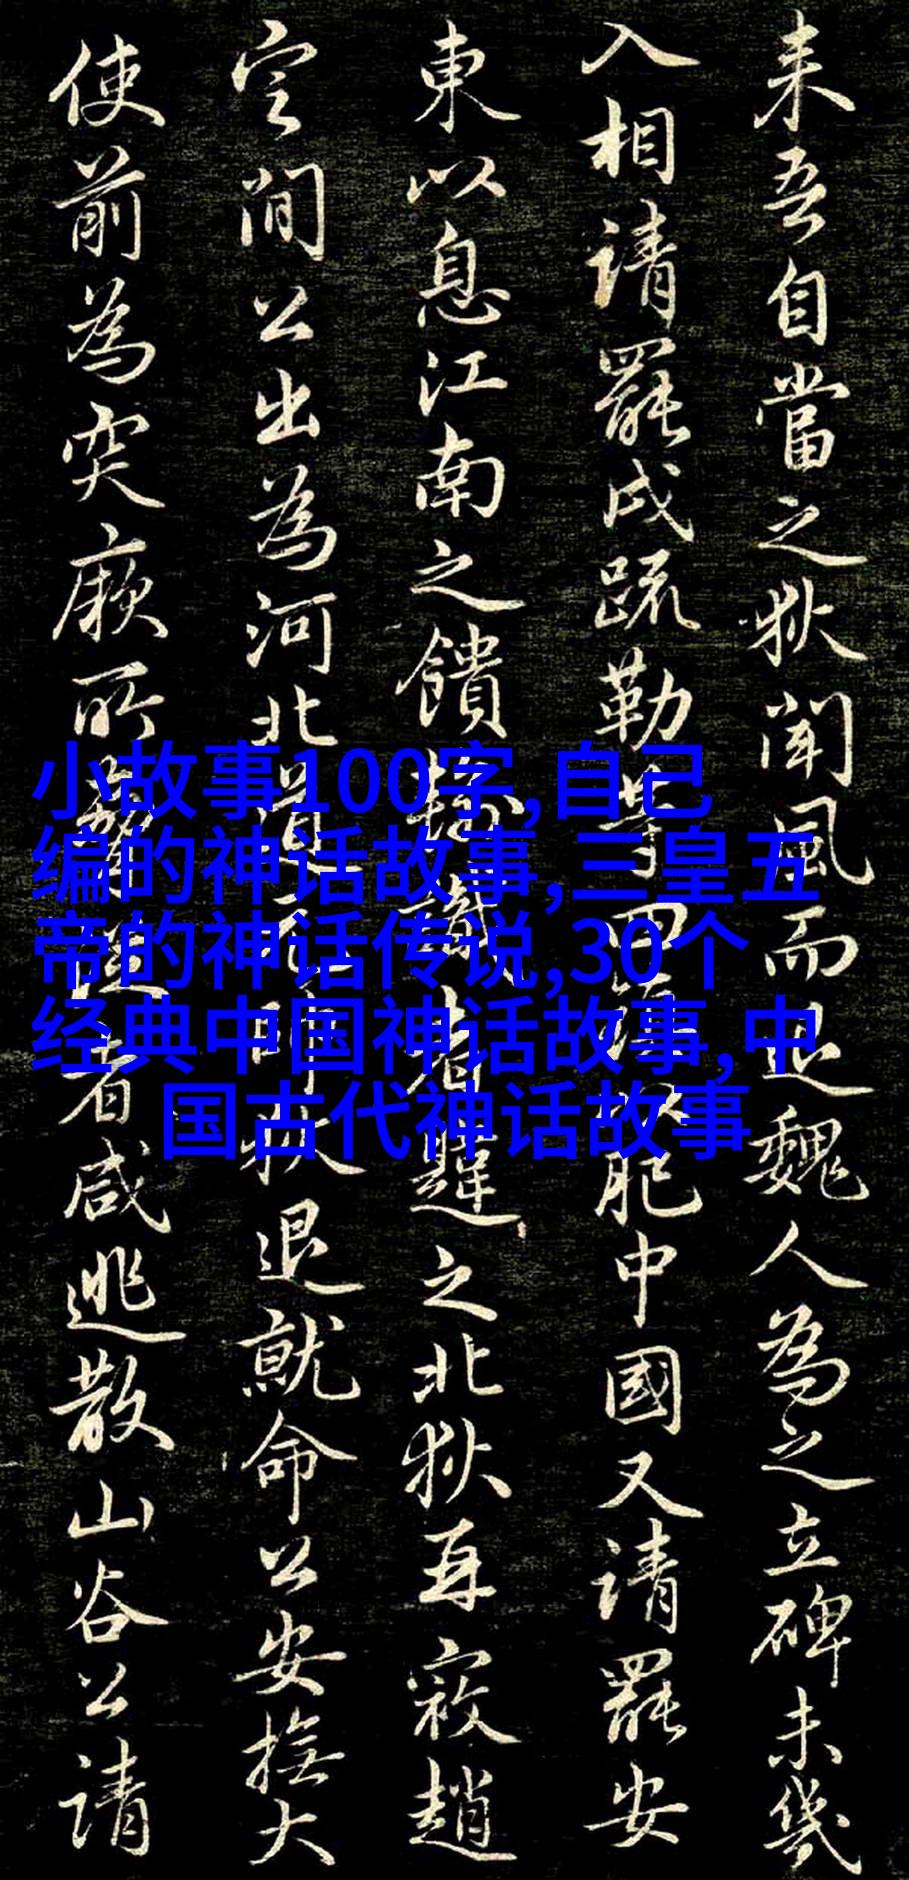 来吾自當之狄聞風而退魏人為之立碑未幾
入相請罷戍疏勒等四鎮以肥中國又請罷安
東以息江南之饋輸識者韙之北狄再寇趙
定間公出為河北道元帥狄退就命公安撫大
使前為突厥所驅逼者咸逃散山谷公請
小故事100字,自己
编的神话故事,三皇五
帝的神话传说,30个
经典中国神话故事,中
国古代神话故事